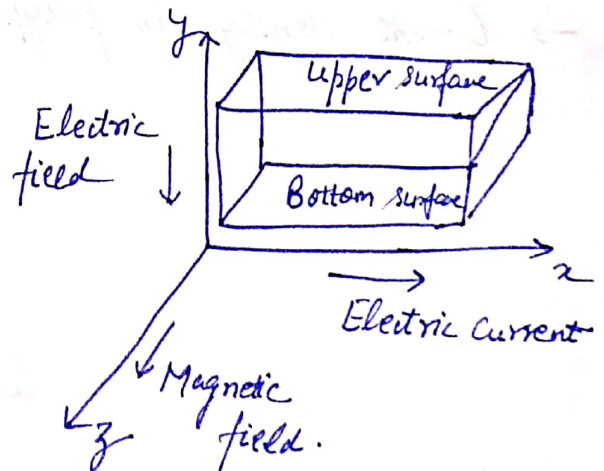 y
Upper surface
Electric
field
Bottom surface
x
Electric current
Magnetic
field.
z